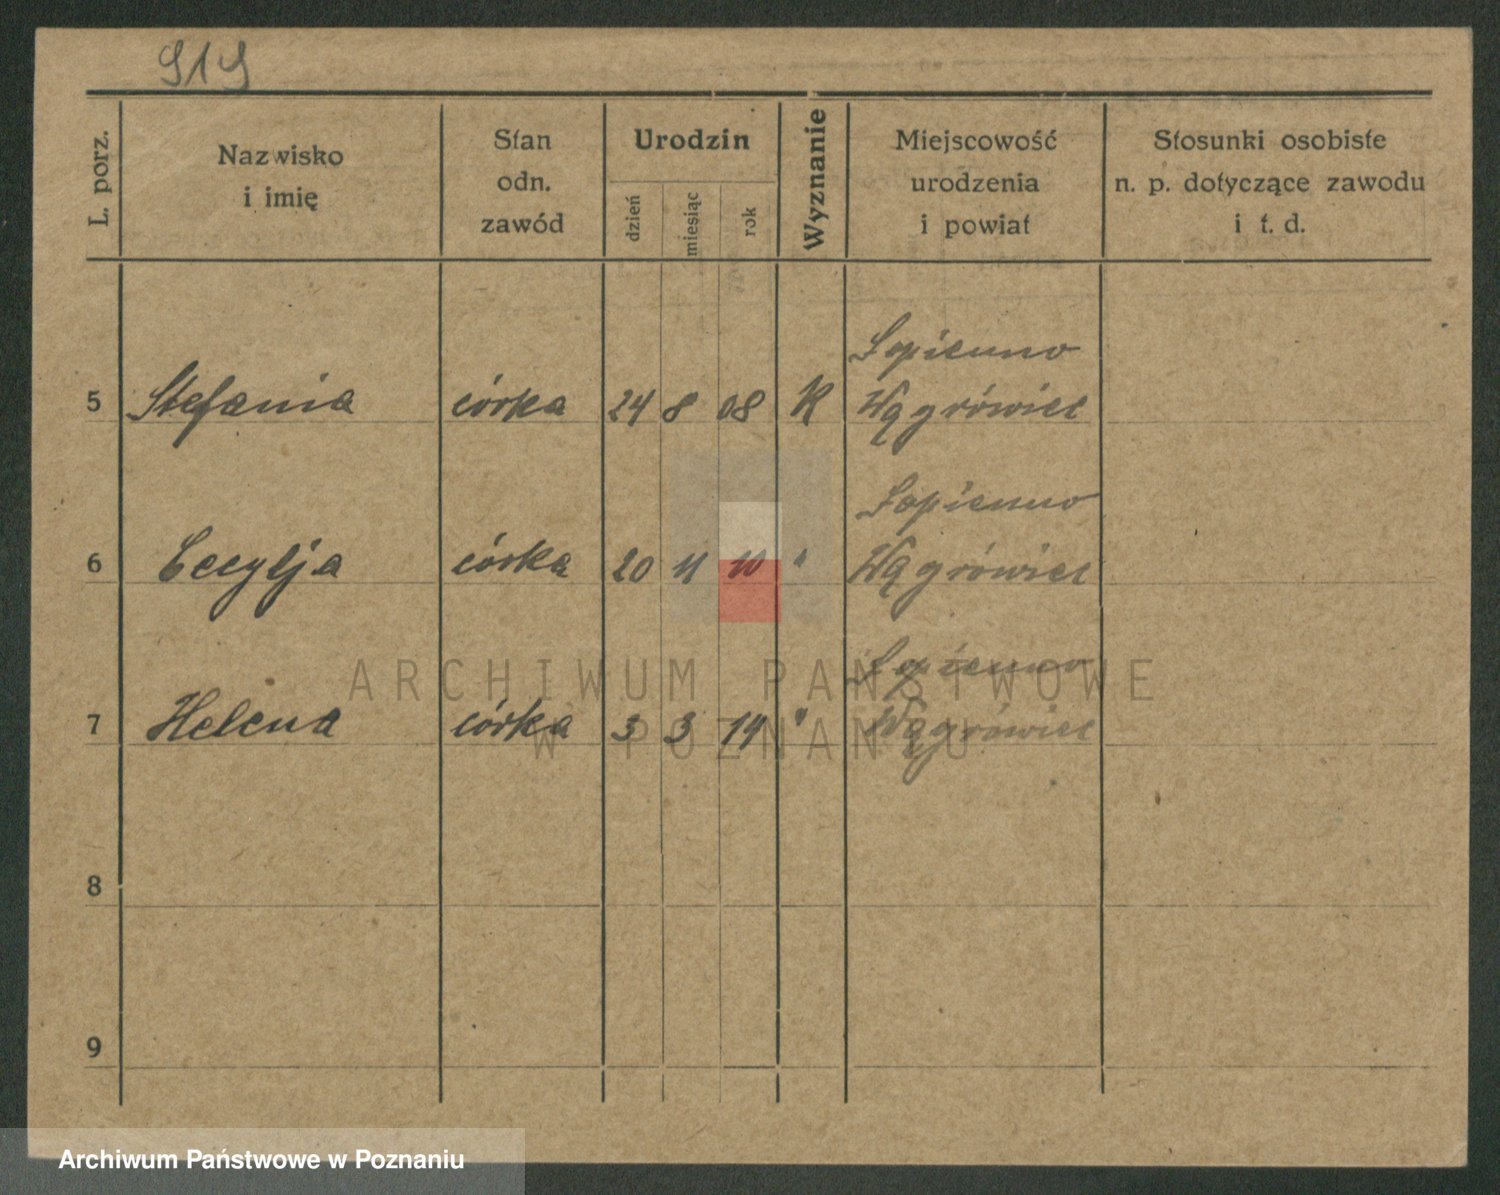 919
L. porz.
Nazwisko
i imię
Stan
odn.
zawód
Urodzin
dzień
miesiąc
rok
Wyznanie
Miejscowość
urodzenia
i powiat
Stosunki osobiste
n. p. dotyczące zawodu
i t. d.
Łopienno
5 Stefania córka 24 8 08 K Wągrówiec
Łopienno
6 Cecylja córka 20 11 10 " Wągrówiec
Łopienno
7 Helena córka 3 3 14 " Wągrówiec
8
9
ARCHIWUM PAŃSTWOWE
W POZNANIU
Archiwum Państwowe w Poznaniu